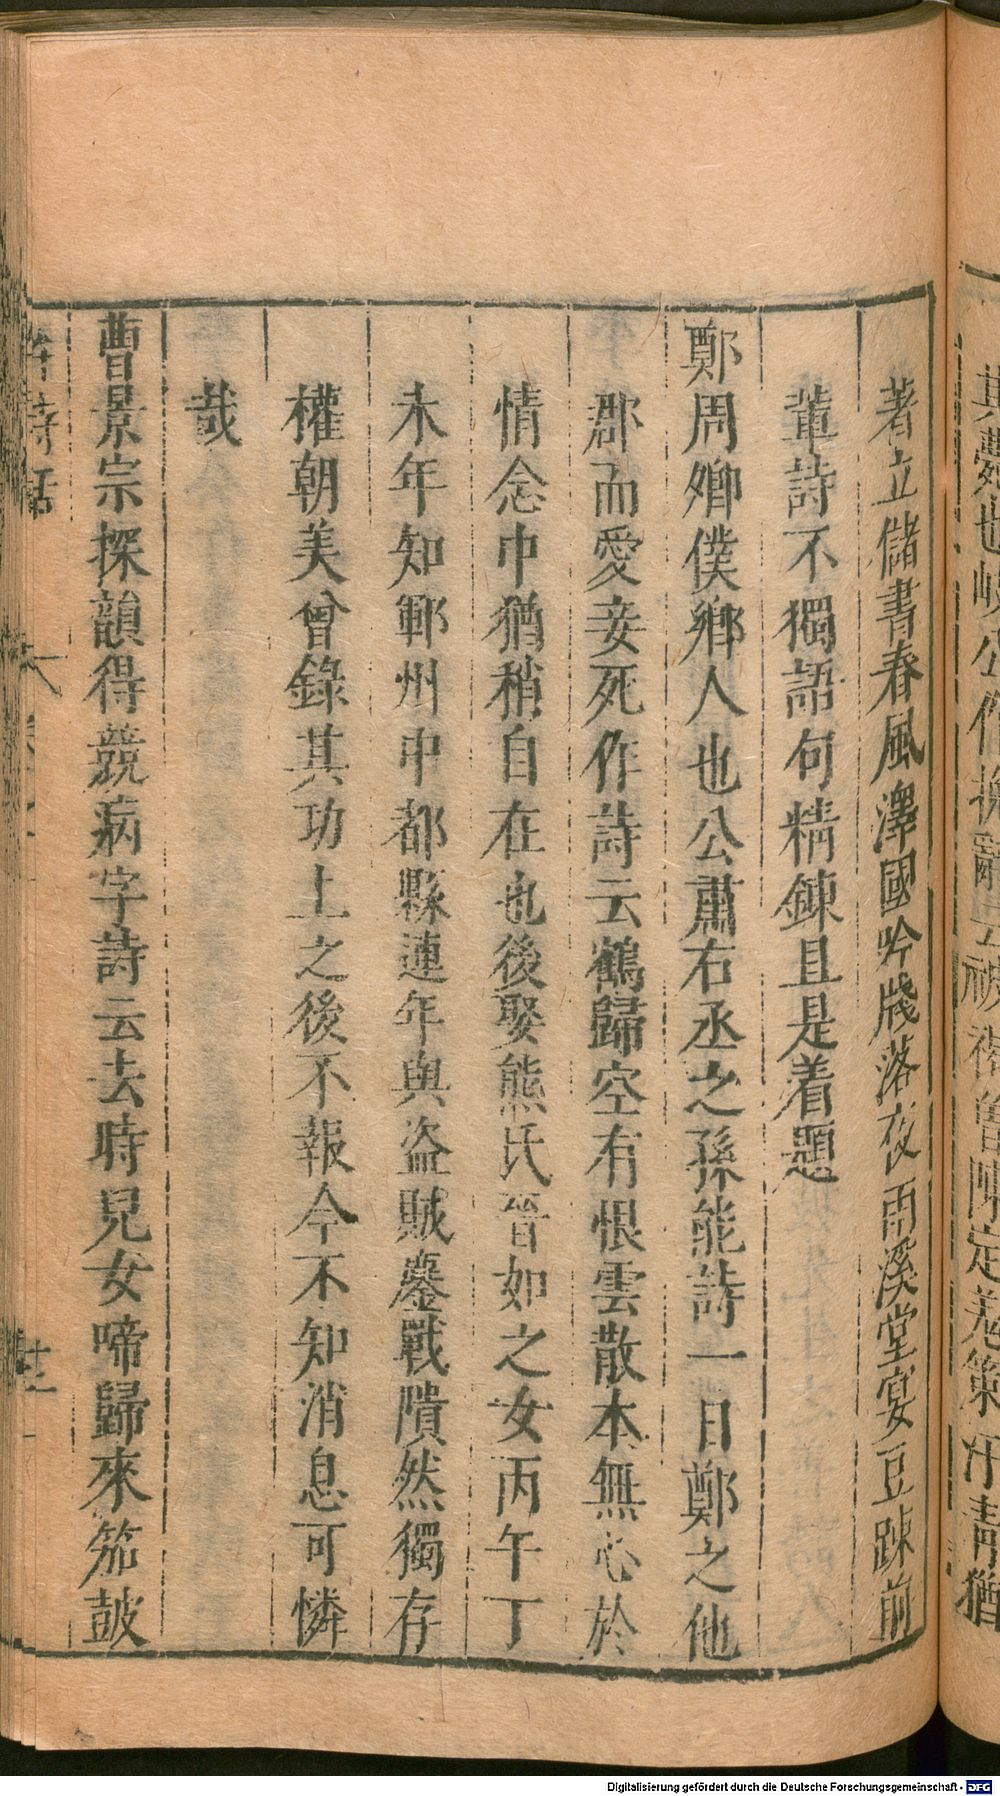 著立儲書春風澤國吟牋落夜雨溪堂宴豆踈前
輩詩不獨語句精鍊且是着題
鄭周卿僕鄉人也公肅右丞之孫能詩一日鄭之他
郡而愛妾死作詩云鶴歸空有恨雲散本無心於
情念中猶稍自在也後娶熊氏晉如之女丙午丁
未年知鄆州中都縣連年與盜賊鏖戰隤然獨存
權朝美曾錄其功上之後不報今不知消息可憐
哉
曹景宗探韻得競病字詩云去時兒女啼歸來笳鼓
詩話
Digitalisierung gefördert durch die Deutsche Forschungsgemeinschaft - DFG